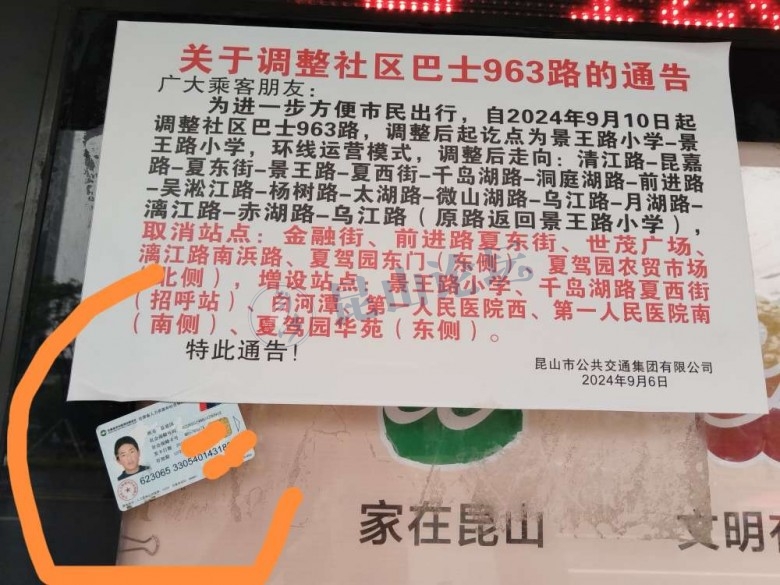 关于调整社区巴士963路的通告
广大乘客朋友：
为进一步方便市民出行，自2024年9月10日起
调整社区巴士963路，调整后起讫点为景王路小学-景
王路小学，环线运营模式，调整后走向：清江路-昆嘉
路-夏东街-景王路-夏西街-千岛湖路-洞庭湖路-前进路
-吴淞江路-杨树路-太湖路-微山湖路-乌江路-月湖路-
漓江路-赤湖路-乌江路（原路返回景王路小学），
取消站点：金融街、前进路夏东街、世茂广场、
漓江路南浜路、夏驾园东门（东侧）、夏驾园农贸市场
（北侧），增设站点：景王路小学、千岛湖路夏西街
（招呼站）、白河潭、第一人民医院西、第一人民医院南
（南侧）、夏驾园华苑（东侧）。
特此通告！
昆山市公共交通集团有限公司
2024年9月6日
昆山论坛
家在昆山
文明在